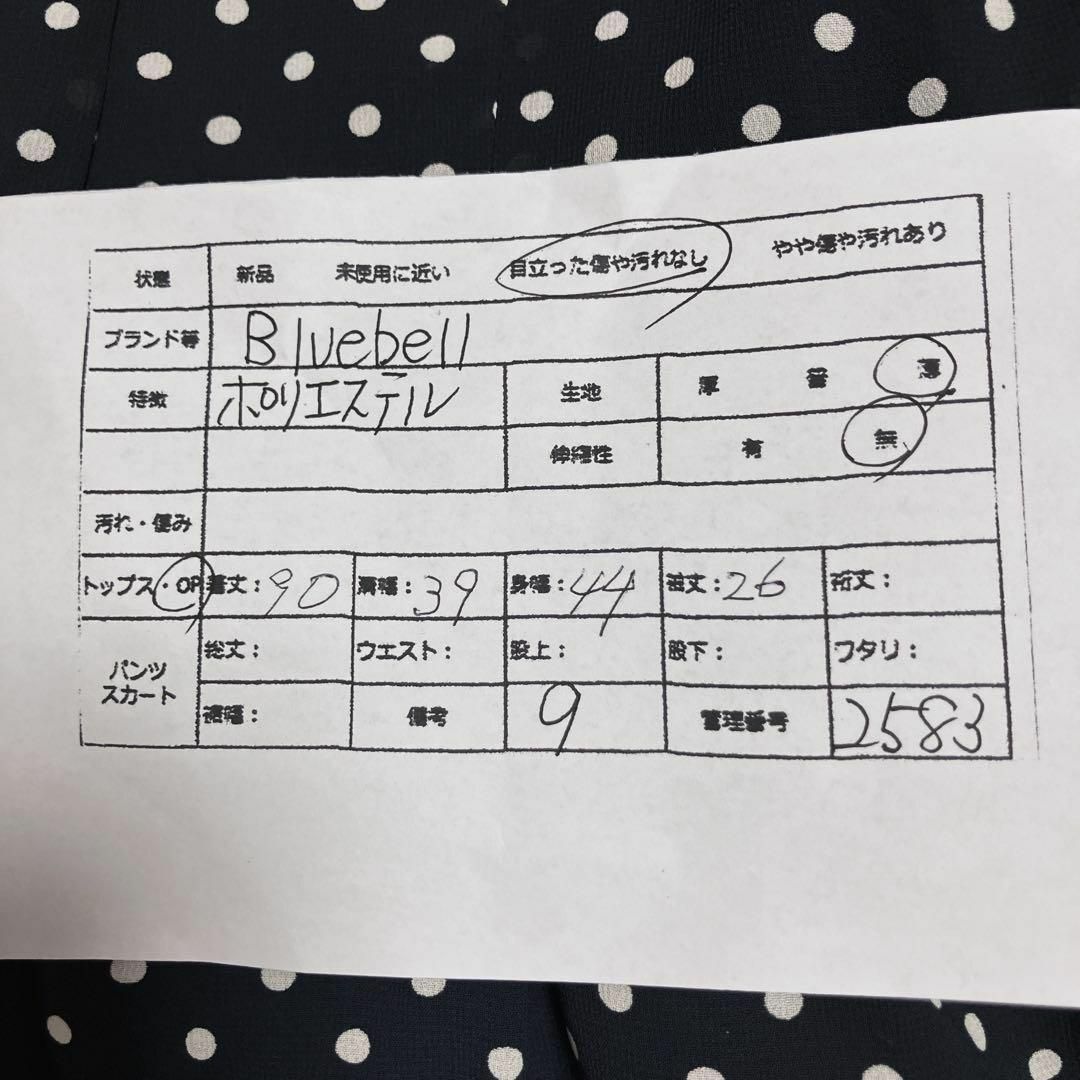 状態 新品 未使用に近い 目立った傷や汚れなし やや傷や汚れあり
ブランド等 Bluebell
特徴 ポリエステル 生地 厚 普 薄
伸縮性 有 無
汚れ・傷み
トップス・OP 着丈:90 肩幅:39 身幅:44 袖丈:26 裄丈:
パンツ スカート 総丈: ウエスト: 股上: 股下: ワタリ:
裾幅: 備考 9 管理番号 2583